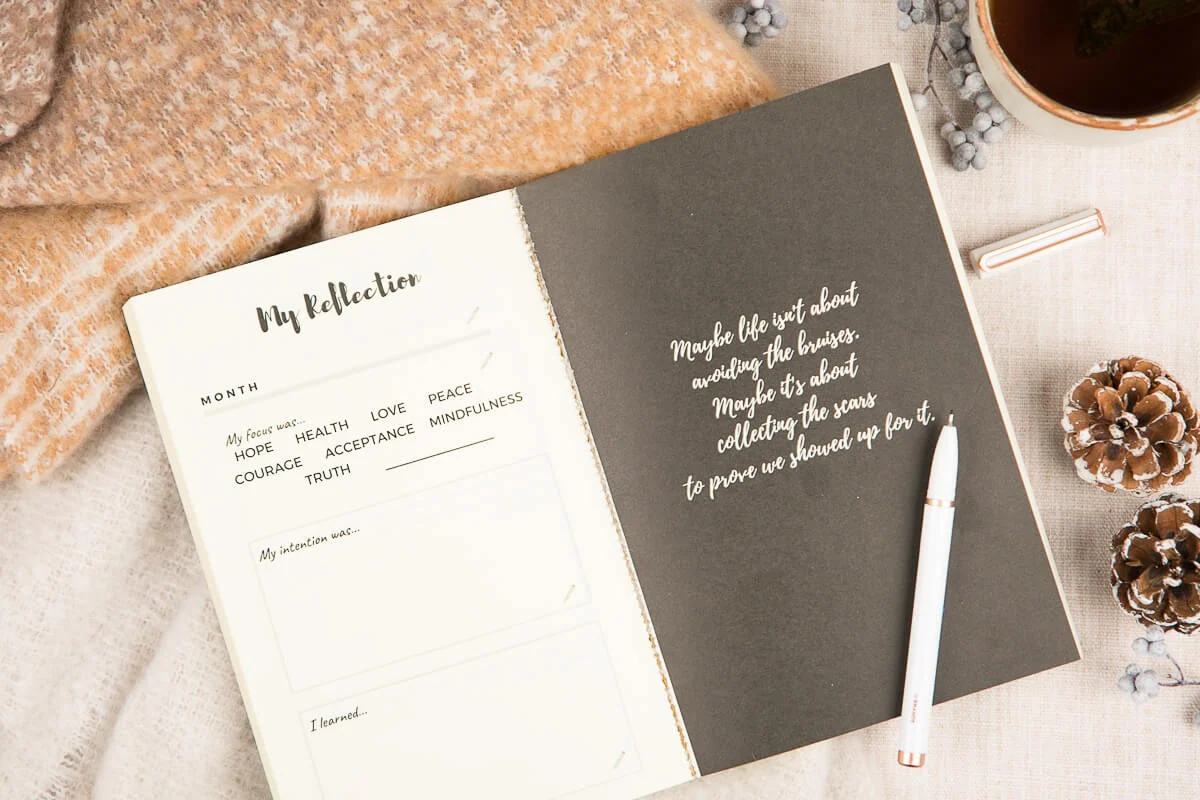 My Reflection
MONTH
My focus was...
HOPE HEALTH LOVE PEACE
COURAGE ACCEPTANCE MINDFULNESS
TRUTH
My intention was...
I learned...
Maybe life isn't about
avoiding the bruises.
Maybe it's about
collecting the scars
to prove we showed up for it.